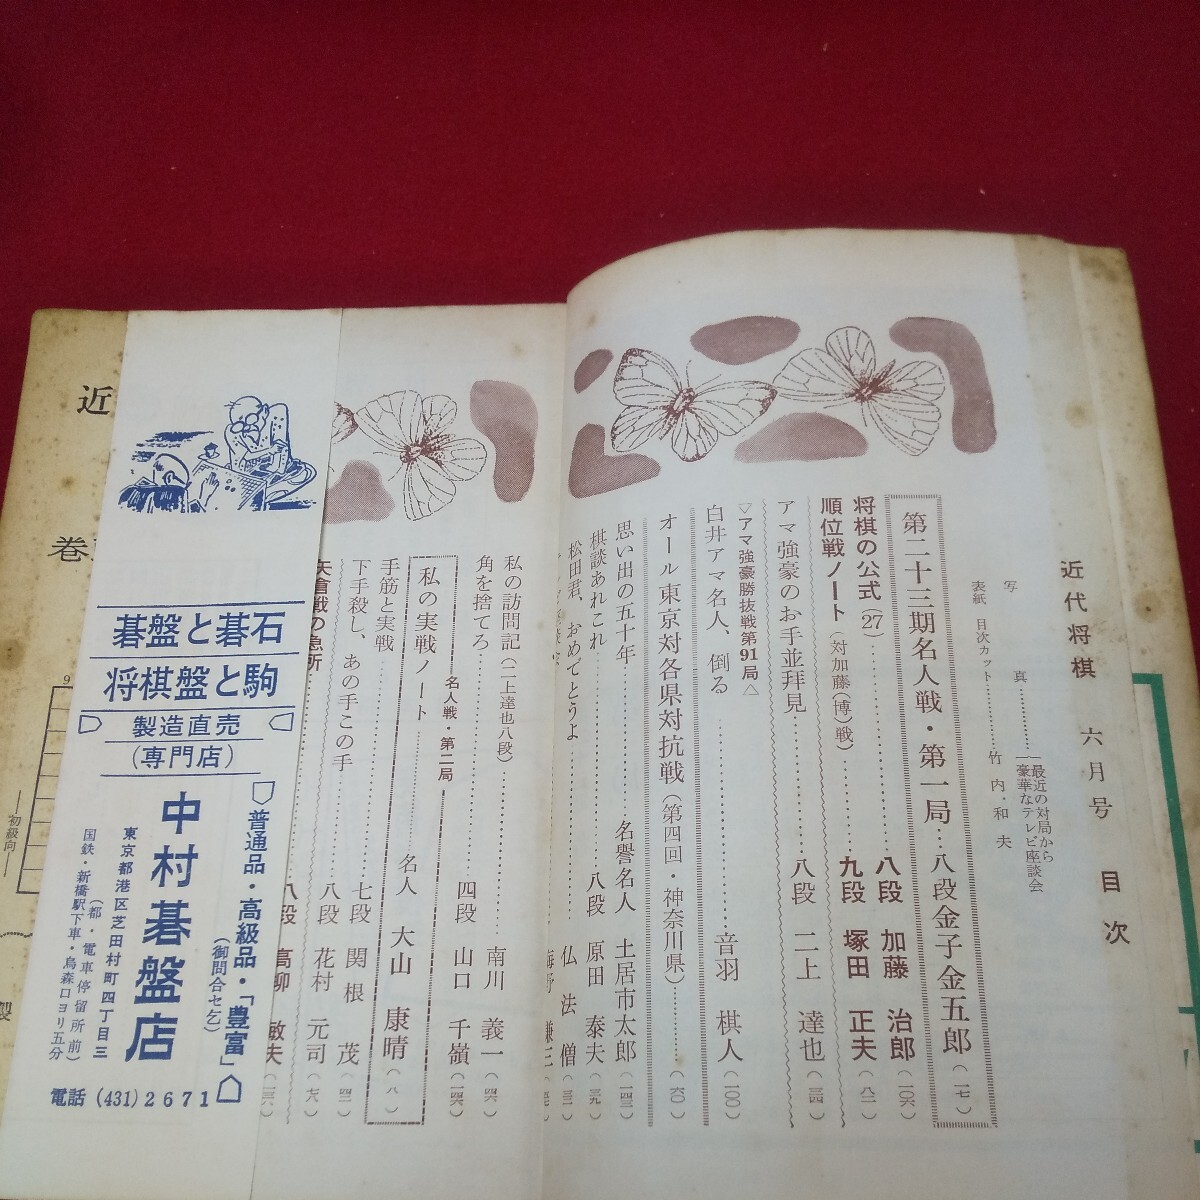 近代将棋 六月号 目次
写真…………最近の対局から
豪華なテレビ座談会
表紙 目次カット…………竹内・和夫
第二十三期名人戦・第一局…八段 金子金五郎(一七)
将棋の公式(27)…………八段 加藤 治郎(一〇六)
順位戦ノート(対加藤(博)戦)…………九段 塚田 正夫(八二)
アマ強豪のお手並拝見…………八段 二上 達也(三四)
▽アマ強豪勝抜戦第91局△
白井アマ名人、倒る…………音羽 棋人(一〇〇)
オール東京対各県対抗戦(第四回・神奈川県)…………(六〇)
思い出の五十年…………名誉名人 土居市太郎
棋談あれこれ…………八段 原田 泰夫
松田君、おめでとうよ…………仏 法 僧
私の訪問記(二上達也八段)…………南川 義一
角を捨てろ…………四段 山口 千嶺
名人戦・第二局
私の実戦ノート…………名人 大山 康晴(八)
手筋と実戦…………七段 関根 茂
下手殺し、あの手この手…………八段 花村 元司
矢倉戦の急所…………八段 高柳 敏夫
碁盤と碁石
将棋盤と駒
製造直売
(専門店)
普通品・高級品・「豊富」
(御問合せ乞)
中村碁盤店
東京都港区芝田村町四丁目三
(都・電車停留所前)
国鉄・新橋駅下車・烏森口ヨリ五分
電話(431)2671
近
巻
初級向
製